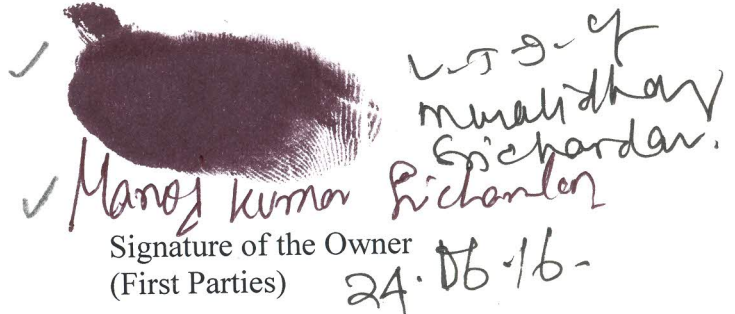 L.T.I. of
Muralidhar
Srichandan.
Manoj Kumar Srichandan
Signature of the Owner
(First Parties)
24.06.16-